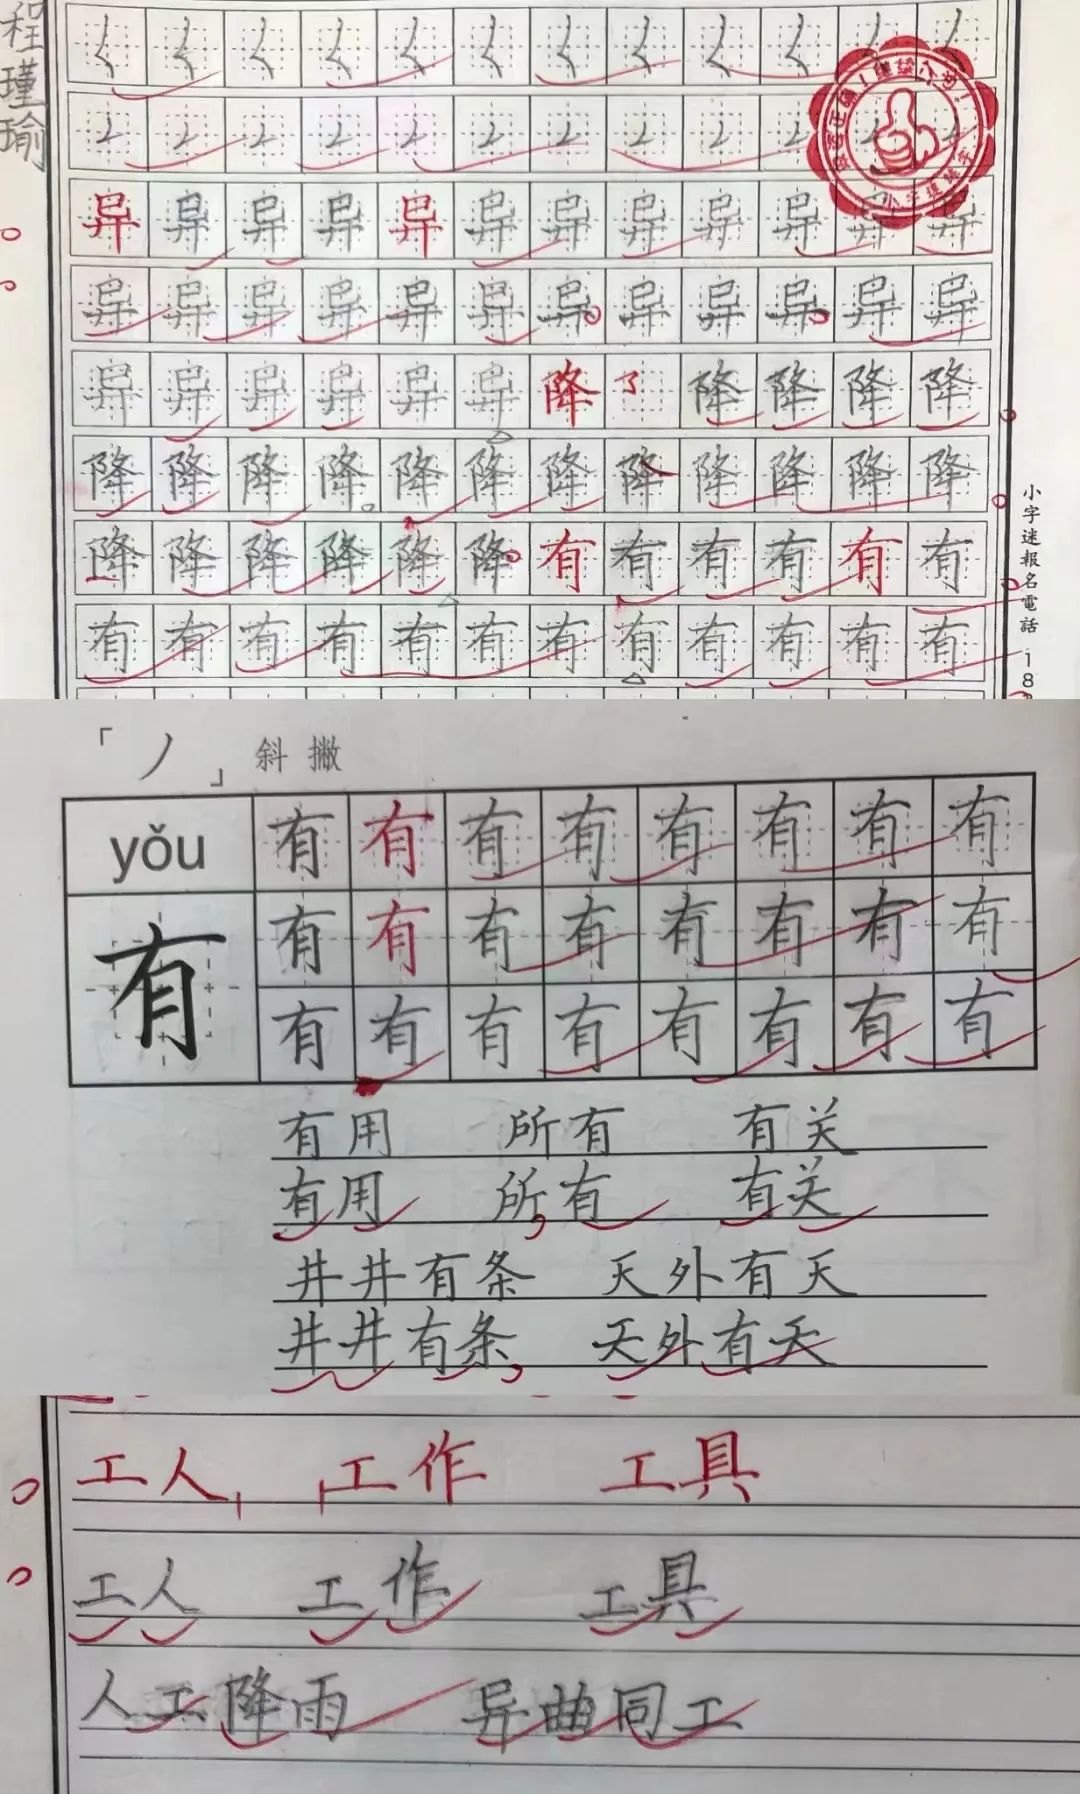 程瑾瑜
异异异异异异异异异异异异
异异异异异异异异异异异异
异异异异异异降 降降降降
降降降降降降降降降降降降
降降降降降降有有有有有有
有有有有有有有有有有有有
小字迷報名電話
「丿」斜撇
yǒu 有有有有有有有有
有 有有有有有有有有
有有有有有有有有
有用 所有 有关
有用 所有 有关
井井有条 天外有天
井井有条 天外有天
工人 工作 工具
工人 工作 工具
人工降雨 异曲同工